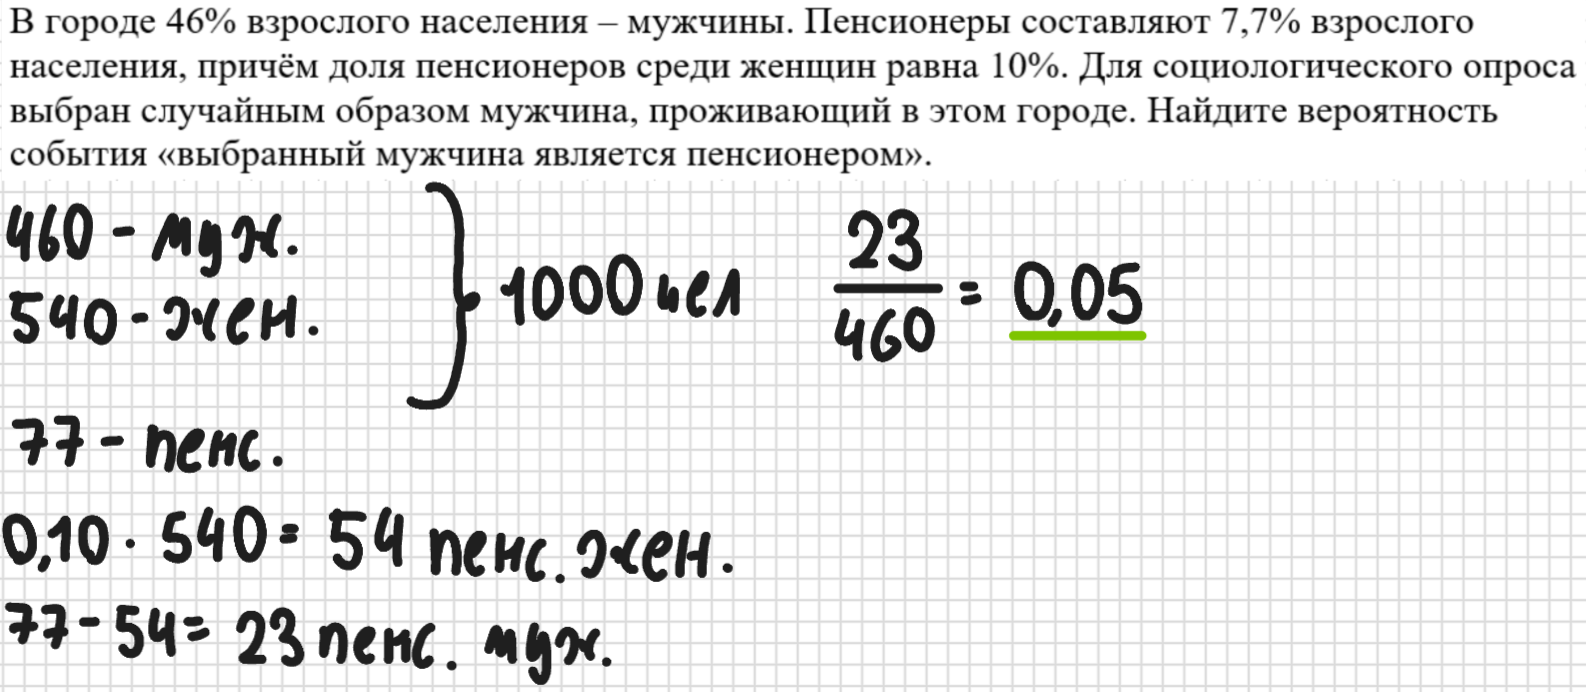 В городе 46% взрослого населения – мужчины. Пенсионеры составляют 7,7% взрослого
населения, причём доля пенсионеров среди женщин равна 10%. Для социологического опроса
выбран случайным образом мужчина, проживающий в этом городе. Найдите вероятность
события «выбранный мужчина является пенсионером».
460 - муж.
540 - жен.
1000 чел
77 - пенс.
0,10 · 540 = 54 пенс. жен.
77 - 54 = 23 пенс. муж.
23/460 = 0,05